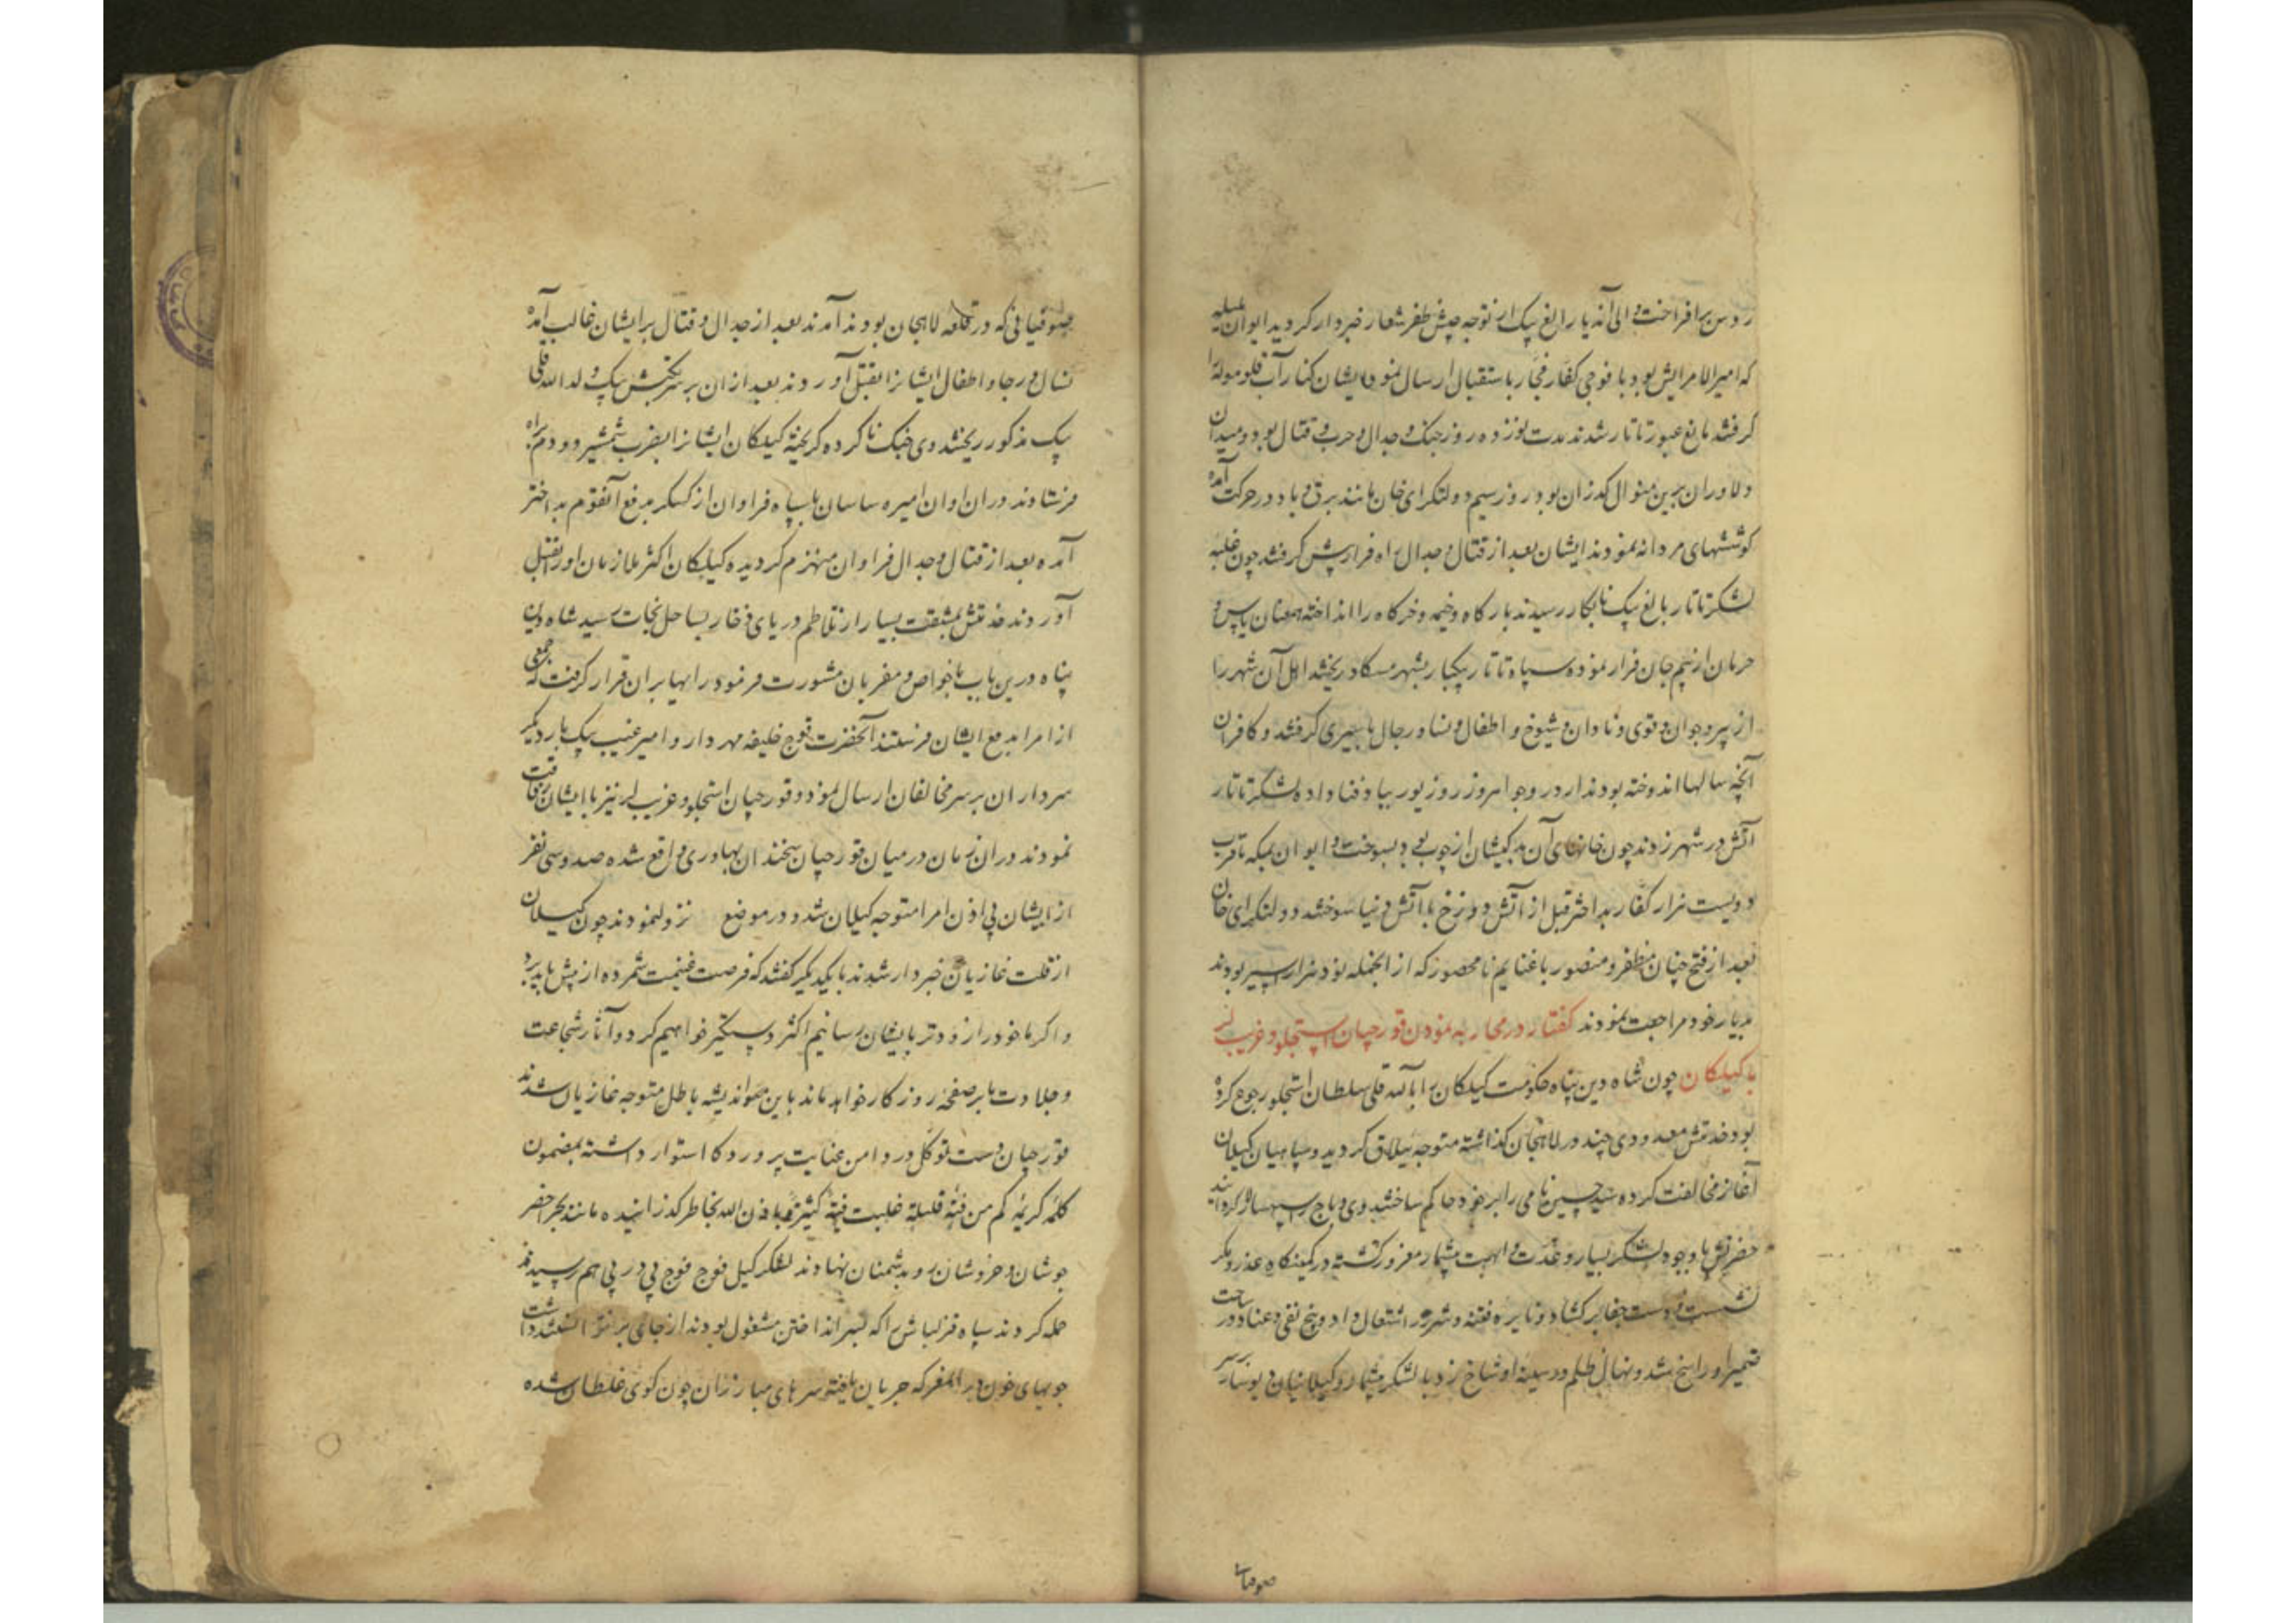 روس برافراخت والی آن دیار الغ بیک از توجه جیش ظفر شعار خبردار گردید ایوان
که امیرالامرایش بود با فوجی کفار فجار باستقبال ارسال نمود ایشان کنار آب
گرفتند مانع عبور تاتار شدند مدت نوزده روز جنک و جدال و حرب و قتال بود و میدان
دلاوران برین منوال گذران بود روز سیم دولتکرای خان مانند برق و باد در حرکت آمده
کوششهای مردانه نمودند ایشان بعد از قتال و جدال راه فرار پیش گرفتند چون غلبه
لشکر تاتار بالغ بیک نابکار رسید بارگاه و خیمه و خرگاه را انداخته همعنان یاس و
حرمان از بیم جان فرار نموده سپاه تاتار یکبار بشهر مسکاو ریختند اهل آن شهر را
از پیر و جوان و قوی و ناتوان و شیوخ و اطفال و نسا و رجال باسیری گرفتند و کافران
آنچه سالها اندوخته بودند در وجه امروز روز یور بباد فنا داده لشکر تاتار
آتش در شهر زدند چون خانهای آن بدکیشان از چوب بود بسوخت و ایوان بیکه تا قرب
دویست هزار کفار بداختر قبل از آتش دوزخ با آتش دنیا سوختند و دولتکرای خان
بعد از فتح چنان مظفر و منصور با غنایم نامحصور که از آنجمله نود هزار اسیر بودند
بدیار خود مراجعت نمودند گفتار در محاربه نمودن قورچیان استجلو و غریب لر
با گیلکان چون شاه دین پناه حکومت گیلکان را بالله قلی سلطان استجلو رجوع کرده
بود خدمتش معدودی چند در لاهجان گذاشته متوجه ییلاق گردید و سپاهیان گیلان
آغاز مخالفت کرده سید حسین نامی را بر خود حاکم ساختند وی و باج
حضرتش باوجود لشکر بسیار و عدت و ابهت بیشمار مغرور گشته در کمینگاه عذر و مکر
نشست و دست جفا برگشاد و نایره فتنه و شرور اشتعال داد و بیخ نفی و عناد در ساحت
ضمیر او راسخ شد و نهال ظلم در سینه او شاخ زد با لشکر بیشمار و گیلانیان بر سر
صوفیانی
صوفیانی که در قلعه لاهجان بودند آمدند بعد از جدال و قتال بر ایشان غالب آمده
نسا و رجا و اطفال ایشانرا بقتل آوردند بعد از آن بر سر بیک ولد الله قلی
بیک مذکور ریختند وی جنک ناکرده گریخته گیلکان ایشانرا بضرب شمشیر دو دم براه
فرستادند دران اوان امیره ساسان با سپاه فراوان از کسکر بدفع آنقوم بداختر
آمده بعد از قتال و جدال فراوان منهزم گردیده گیلکان اکثر ملازمان او را بقتل
آوردند خدمتش بمشقت بسیار از تلاطم دریای ذخار بساحل نجات رسید شاه دین
پناه درین باب با خواص و مقربان مشورت فرمود رایها بران قرار گرفت که جمعی
از امرا بدفع ایشان فرستند آنحضرت قوج خلیفه مهردار و امیر غیب بیک با دیگر
سرداران بر سر مخالفان ارسال نمود و قورچیان استجلو و غریب لر نیز با ایشان رفاقت
نمودند دران زمان در میان قورچیان سخندان بهادری واقع شده صد و سی نفر
از ایشان بی اذن امرا متوجه گیلان شد و در موضع نزول نمودند چون گیلان
از قلت غازیان خبردار شدند با یکدیگر گفتند که فرصت غنیمت شمرده از پیش باید برد
و اگر ما خود را زودتر بایشان رسانیم اکثر دستگیر خواهیم کرد و آثار شجاعت
و جلادت ما بر صفحهٔ روزگار خواهد ماند باین اندیشه باطل متوجه غازیان شدند
قورچیان دست توکل در دامن عنایت پروردگار استوار داشته بمضمون
کلمهٔ کریمهٔ کم من فئة قلیلة غلبت فئة کثیرة باذن الله بخاطر گذرانیده مانند بحر اخضر
جوشان و خروشان رو بدشمنان نهادند لشکر گیل فوج فوج پی در پی هم رسیده
حمله کردند سپاه قزلباش را که بسر انداختن مشغول بودند از جای بر نتوانستند داشت
جویهای خون در المعرکه جریان یافته سرهای مبارزان چون گوی غلطان شده